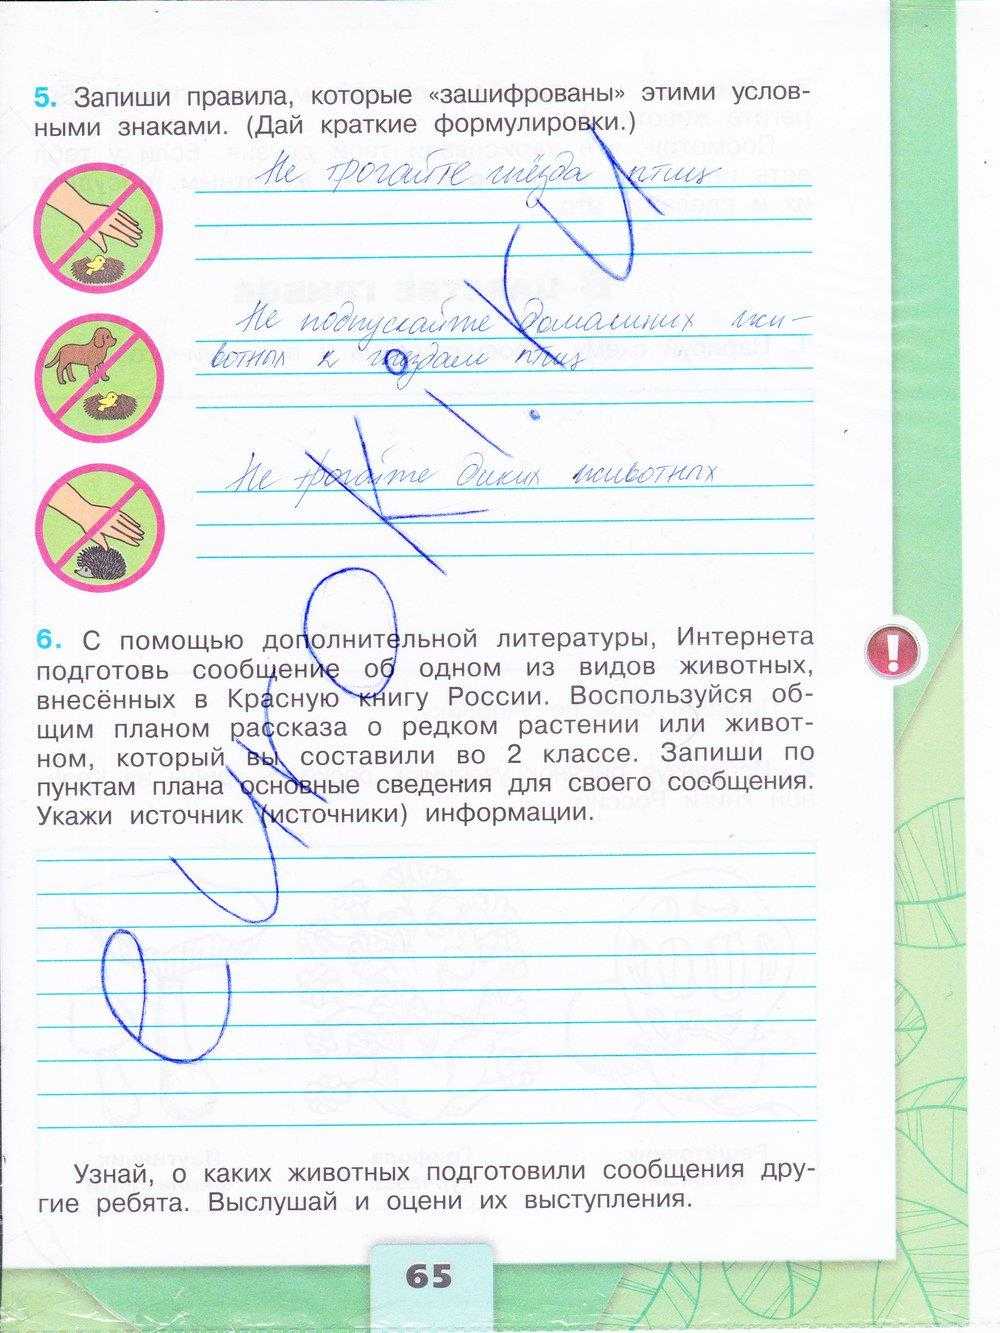 5. Запиши правила, которые «зашифрованы» этими услов-
ными знаками. (Дай краткие формулировки.)
Не трогайте гнёзда птиц
Не подпускайте домашних жи-
вотных к гнёздам птиц
Не трогайте диких животных
6. С помощью дополнительной литературы, Интернета
подготовь сообщение об одном из видов животных,
внесённых в Красную книгу России. Воспользуйся об-
щим планом рассказа о редком растении или живот-
ном, который вы составили во 2 классе. Запиши по
пунктам плана основные сведения для своего сообщения.
Укажи источник (источники) информации.
Узнай, о каких животных подготовили сообщения дру-
гие ребята. Выслушай и оцени их выступления.
65
euroki.ru
!